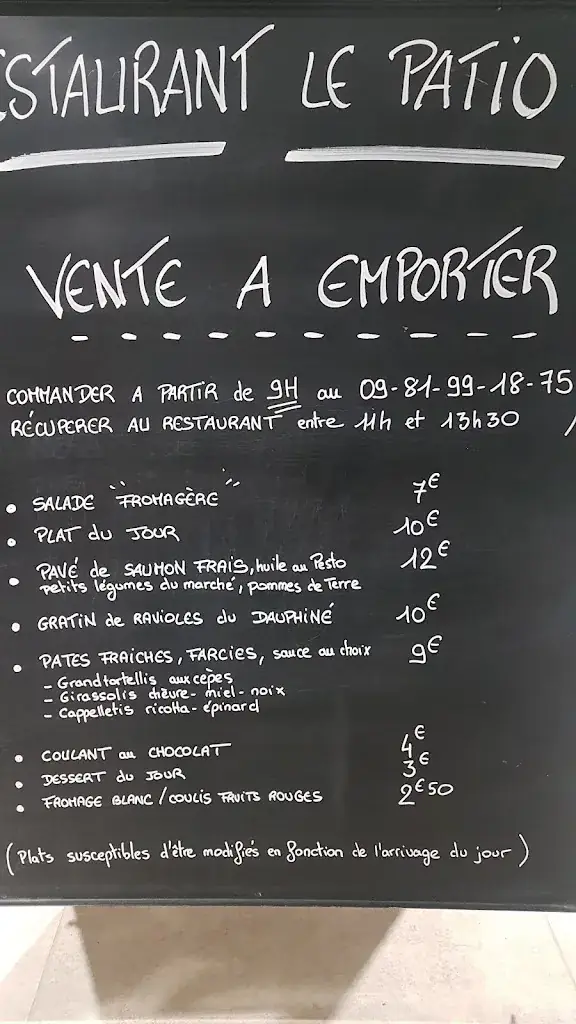 ESTAURANT LE PATIO
VENTE A EMPORTER
COMMANDER A PARTIR de 9H au 09-81-99-18-75
RÉCUPERER AU RESTAURANT entre 11h et 13h30 /
• SALADE "FROMAGÈRE" 7€
• PLAT du JOUR 10€
• PAVÉ de SAUMON FRAIS, huile au Pesto 12€
petits légumes du marché, pommes de Terre
• GRATIN de RAVIOLES du DAUPHINÉ 10€
• PATES FRAICHES, FARCIES, sauce au choix 9€
- Grandtortellis aux cèpes
- Girassolis chèvre-miel-noix
- Cappelletis ricotta-épinard
• COULANT au CHOCOLAT 4€
• DESSERT du JOUR 3€
• FROMAGE BLANC / COULIS FRUITS ROUGES 2€50
(Plats susceptibles d'être modifiés en fonction de l'arrivage du jour)